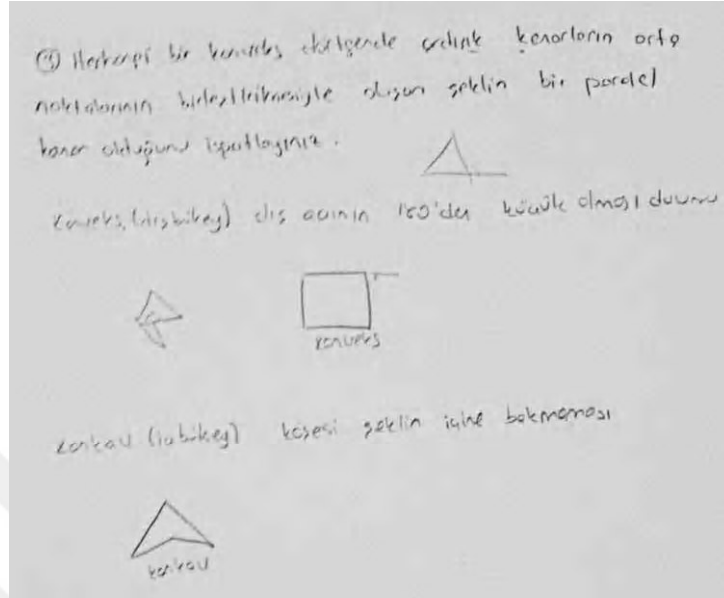 Herhangi bir konveks dörtgende ardışık kenarların orta
noktalarının birleştirilmesiyle oluşan şeklin bir paralel
kenar olduğunu ispatlayınız.
Konveks (dışbükey) dış açının 180'den küçük olması durumu
konveks
konkav (içbükey) köşesi şeklin içine bakmaması
konkav